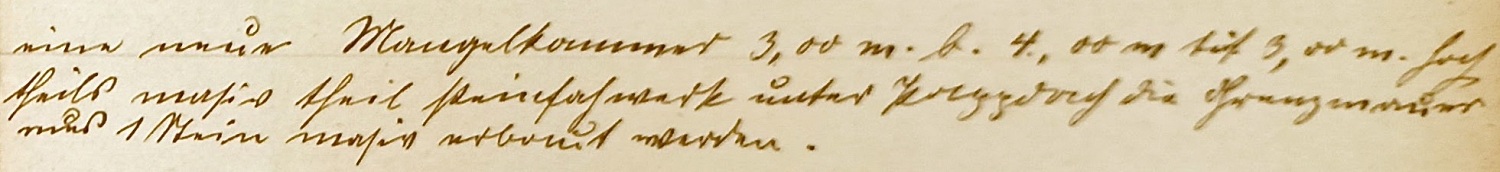 eine neue Mangelkammer 3,00 m. b. 4,00 m tif 3,00 m. hoch
theils masiv theil steinfahwerk unter Pappdach die Grenzmauer
mus 1 Stein masiv erbaut werden.